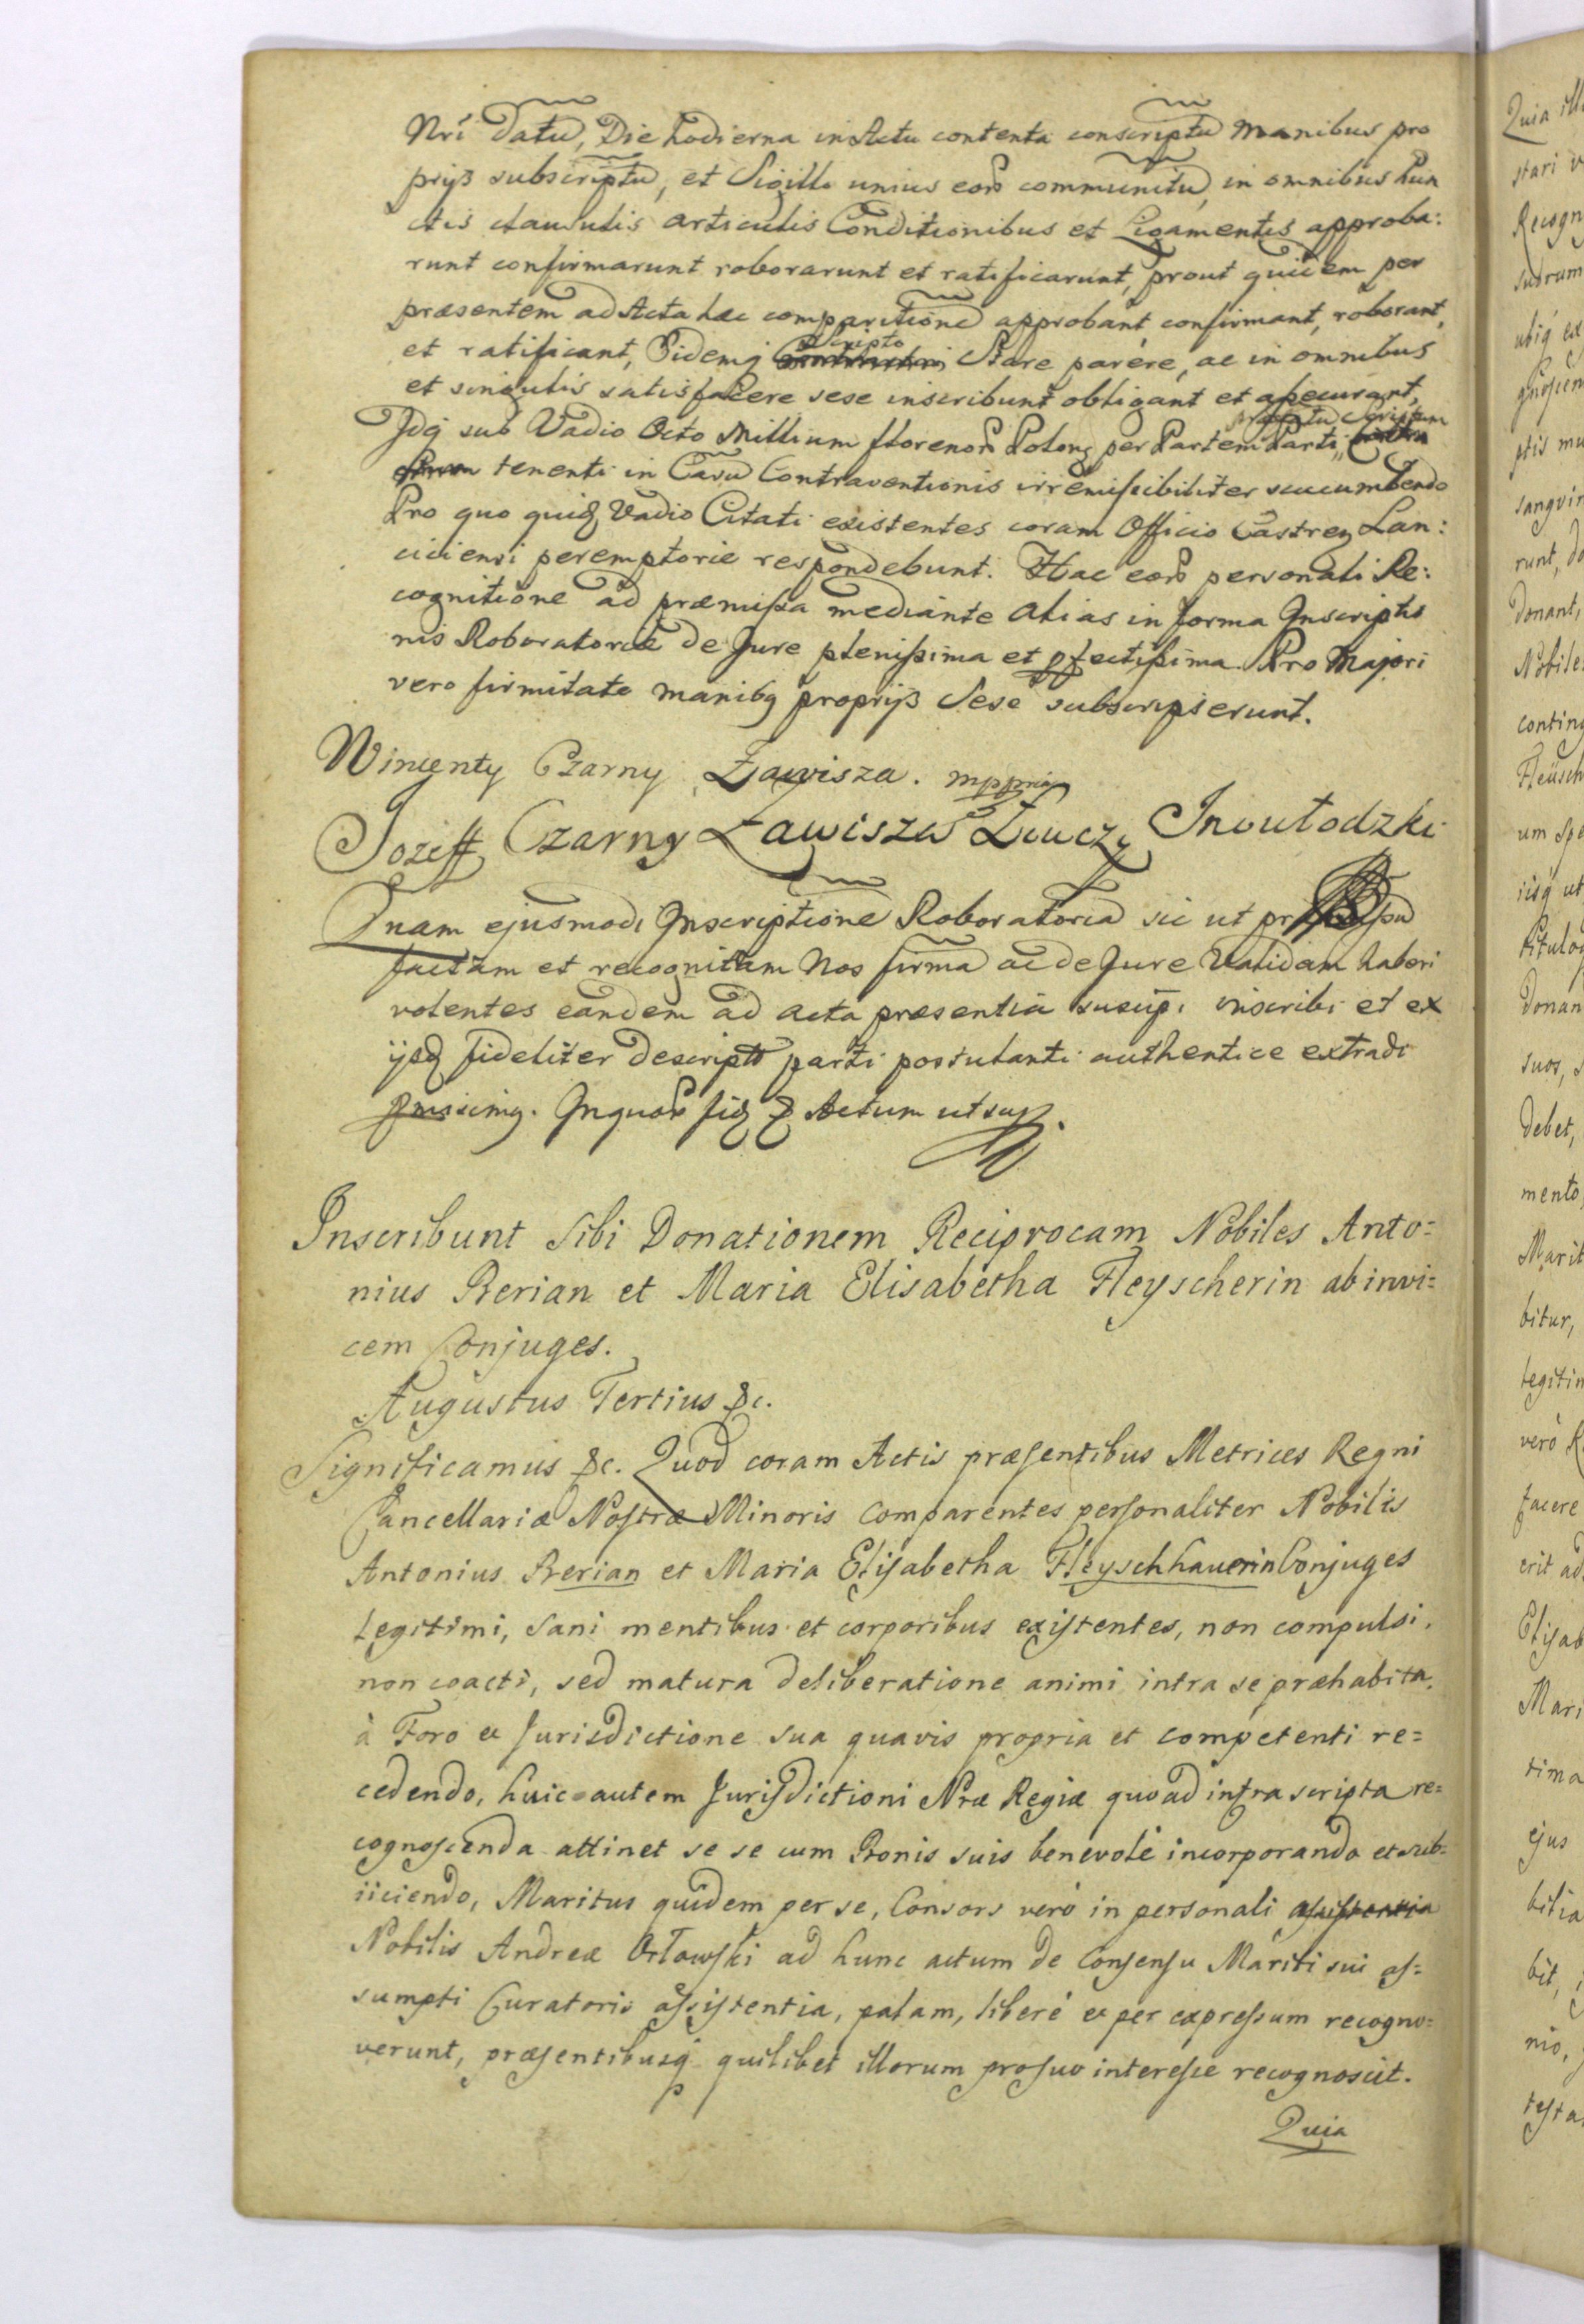 Nri datu, Die hodierna in Actu contenta conscriptu manibus pro
prijs subscriptu, et Sigillo unius eor communitu, in omnibus Pun
ctis clausulis articulis Conditionibus et Ligamentis approba:
runt confirmarunt roborarunt et ratificarunt, prout quidem per
præsentem ad Acta hæc comparitione approbant confirmant, roborant,
et ratificant, Eidemq Scripto Stare parére, ac in omnibus
et singulis satisfacere sese inscribunt obligant et assecurant,
Idq sub Vadio Octo Millium florenor Polonz per Partem Parti
tenenti in Casu Contraventionis irremissibiliter succumbendo
Pro quo quidz Vadio Citati existentes coram Officio Castrez Lan:
ciciensi peremptorie respondebunt. Hac eor personali Re:
cognitione ad præmissa mediante alias in forma Inscriptio
nis Roboratoriæ de Jure plenissima et pfectissima. Pro Majori
vero firmitate manibq proprijs Sese subscripserunt.
Wincenty Czarny Zawisza. mppria
Jozeff Czarny Zawisza Inoułodzki
Quam ejusmodi Inscriptione Roboratoria sic ut
factam et recognitam Nos firma ac de Jure Validam haberi
volentes eandem ad acta præsentia suscip. inscribi et ex
ijsd fideliter descripta parti postulanti authentice extradi
In quor fid Actum ut sup.
Inscribunt Sibi Donationem Reciprocam Nobiles Anto=
nius Berian et Maria Elisabetha Fleyscherin ab invi=
cem Conjuges.
Augustus Tertius &c.
Significamus &c. Quod coram Actis præsentibus Metrices Regni
Cancellariæ Nostræ Minoris comparentes personaliter Nobilis
Antonius Berian et Maria Elisabetha Fleyschhauerin Conjuges
legitimi, sani mentibus et corporibus existentes, non compulsi,
non coacti, sed matura deliberatione animi intra se præhabita,
à Foro et Jurisdictione sua quavis propria et competenti re=
cedendo, huic autem Jurisdictioni Nræ Regiæ quoad infra scripta re=
cognoscenda attinet se se cum Bonis suis benevolé incorporando et sub=
iiciendo, Maritus quidem per se, Consors veró in personali assistentia
Nobilis Andreæ Orłowski ad hunc actum de Consensu Mariti sui as=
sumpti Curatoris assistentia, palam, liberé et per expressum recogno=
verunt, præsentibusq quilibet illorum pro suo interesse recognoscit.
Quia